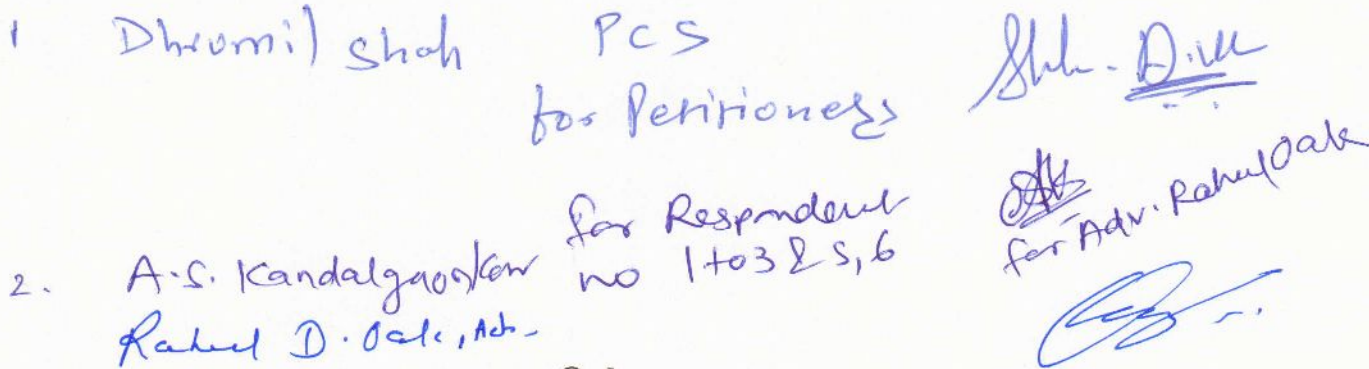 1 Dhrumil Shah PCS
for Petitioners
2. A.S. Kandalgaonkar for Respondent
no 1 to 3 & 5, 6
for Adv. Rahul Oak
Rahul D. Oak, Adv.